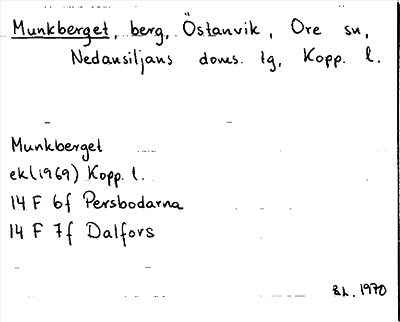 Munkberget, berg, Östanvik, Ore sn,
Nedansiljans doms. lg, Kopp. l.
Munkberget
ek(1969) Kopp. l.
14 F 6f Persbodarna
14 F 7f Dalfors
1970